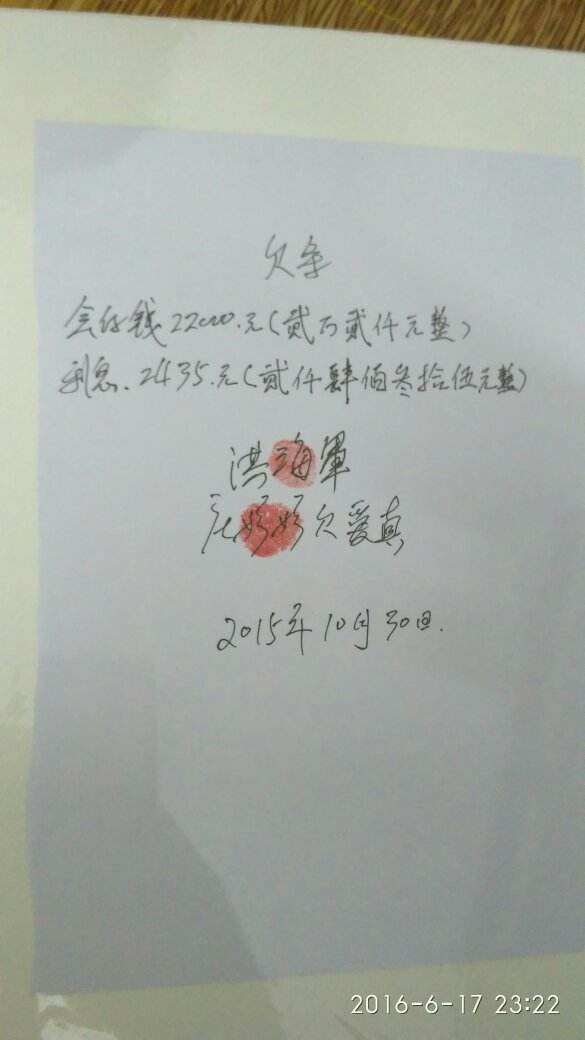 欠条
会仔钱22000.元(贰万贰仟元整)
利息.2435.元(贰仟肆佰叁拾伍元整)
洪海軍
庄婷婷欠爱真
2015年10月30日.
2016-6-17 23:22